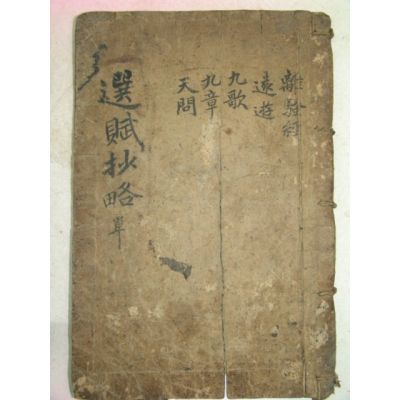 離騷經
遠遊
九歌
九章
天問
選賦抄略 單